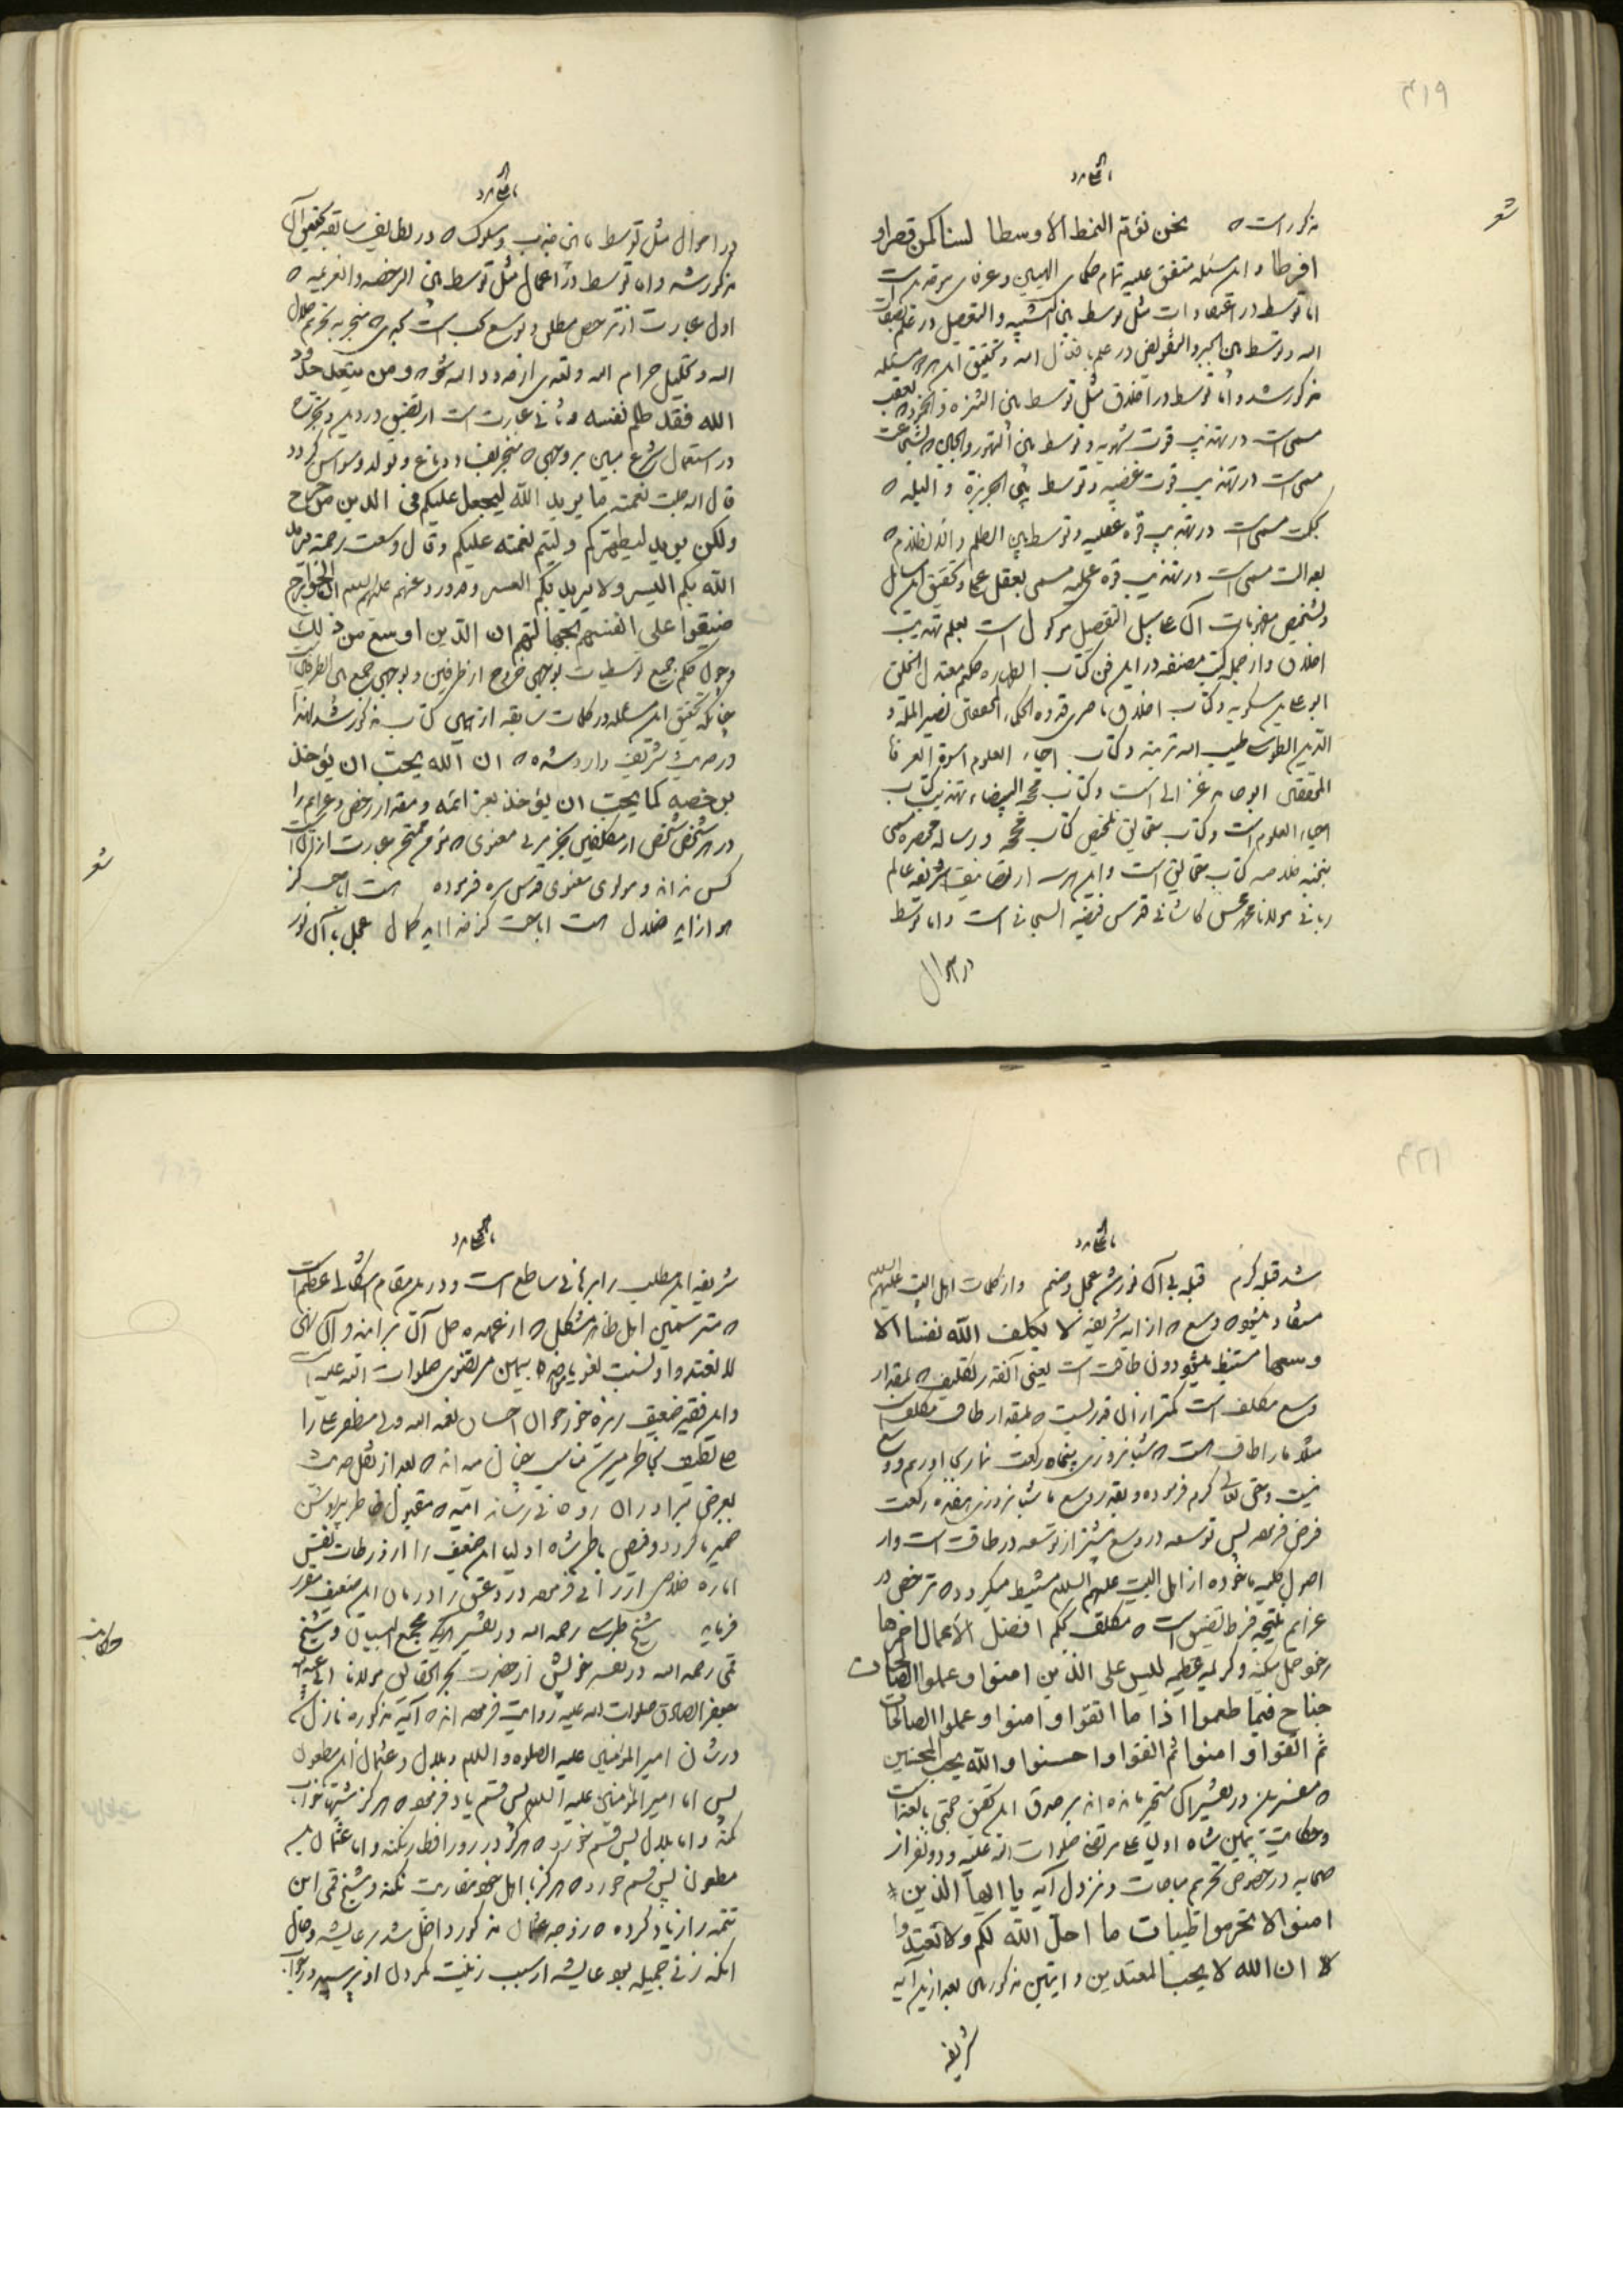 ۴۱۹
مذکور است که نحن نؤم النمط الأوسطا لسنا کمن قصر او
افرطا و این مسئله متفق علیه تمام حکمای الهیین و عرفای موحدین است
اما توسط در اعتقادات مثل توسط بین التشبیه و التعطیل در علم صفات
الله و توسط بین الجبر و التفویض در علم بافعال الله و تحقیق این هر دو مسئله
مذکور شد و اما توسط در اخلاق مثل توسط بین الشره و الخمود که بعفت
مسمی است در تهذیب قوت شهویه و توسط بین التهور و الجبن که بشجاعت
مسمی است در تهذیب قوت غضبیه و توسط بین الجربزة و البله که
بحکمت مسمی است در تهذیب قوه عقلیه و توسط بین الظلم و الانظلام که
بعدالت مسمی است در تهذیب قوه عملیه مسمی بعقل عملی و تحقیق این مسائل
و تشخیص مفهومات آن علی سبیل التفصیل موکول است بعلم تهذیب
اخلاق و از جمله کتب مصنفه در این فن کتاب الطهاره حکیم معتدل الخلق
ابو علی مسکویه و کتاب اخلاق ناصری قدوه الحکماء المحققین نصیر الملة و
الدین الطوسی طیب الله تربته و کتاب احیاء العلوم اسوة العرفا
المحققین ابو حامد غزالی است و کتاب محجة البیضاء تهذیب کتاب
احیاء العلوم است و کتاب حقایق تلخیص کتاب محجه و رساله مختصره مسمی
بنخبه خلاصه کتاب حقایق است و این هر سه از تصانیف شریفه عالم
ربانی مولانا محمد محسن کاشانی قدس فیضه السبحانی است و اما توسط
در احوال
در احوال مثل توسط ما بین جذب و سلوک که در لطایف سابقه تحقیق آن
مذکور شد و اما توسط در اعمال مثل توسط بین الرخصه و العزیمه که
اول عبارت از ترخص مطلق و توسع است بحدی که منجر به تحریم حلال
الله و تحلیل حرام الله و تعدی از حدود الله شود و من یتعد حدود
الله فقد ظلم نفسه و ثانی عبارت است از تضیق در دین و تحرز
در استعمال شرع مبین بر وجهی که منجر بفساد دماغ و تولد وسواس گردد
قال الله جلت نعمته ما یرید الله لیجعل علیکم فی الدین من حرج
ولکن یرید لیطهرکم ولیتم نعمته علیکم وقال وسعت رحمته یرید
الله بکم الیسر ولا یرید بکم العسر و ورد عنهم علیهم السلم ان الخوارج
ضیقوا علی انفسهم بجهالتهم ان الدین اوسع من ذلک
و چون حکم جمیع توسطیات بوجهی خروج از طرفین و بوجهی جمع بین الطرفین است
چنانکه تحقیق این مسئله در کلمات سابقه از همین کتاب مذکور شد لهذا
در حدیث شریف وارد شده که ان الله یحب ان یؤخذ
برخصه کما یحب ان یؤخذ بعزائمه و مقدار رخص و عزایم را
در هر شخص شخص از مکلفین بجز مربی معنوی که مؤمن ممتحن عبارت از آن است
کس نداند و مولوی معنوی قدس سره فرموده است اباحت کز
هوا زاید ضلال است اباحت کز خدا آید کمال عجل با آن نور
۴۲۱
شد قبله کرم قبله بی آن نور شد عجل و صنم و از کلمات اهل البیت علیهم السلم
مستفاد میشود که وسع که از آیه شریفه لا یکلف الله نفسا الا
وسعها مستنبط میشود دون طاقت است یعنی آنقدر تکلیف که بمقدار
وسع مکلف است کمتر از آن قدریست که بمقدار طاقت مکلف است
مثلا ما را طاقت است که شبانروزی پنجاه رکعت نماز بجا آوریم و وسع
نیست و حق تعالی کرم فرموده و بقدر وسع ما شبانروزی هفده رکعت
فرض فرموده پس توسعه در وسع بیشتر از توسعه در طاقت است و از
اصول کلیه ماخوذه از اهل البیت علیهم السلم مستنبط میگردد که ترخص در
عزایم نتیجه فرط تقیید است که مکلف بحکم افضل الاعمال احمزها
رخو حمل میکند و کریمه عظیمه لیس علی الذین امنوا وعملوا الصالحات
جناح فیما طعموا اذا ما اتقوا وامنوا وعملوا الصالحات
ثم اتقوا وامنوا ثم اتقوا واحسنوا والله یحب المحسنین
که مفسرین در تفسیر آن متحیر مانده اند بر صدق این تحقیق حجتی بالغه است
و حکایت یمین شاه اولیا علی مرتضی صلوات الله علیه و دو نفر از
صحابه در خصوص تحریم مباحات و نزول آیه یا ایها الذین
امنوا لا تحرموا طیبات ما احل الله لکم ولا تعتدوا
ان الله لا یحب المعتدین و ایتین مذکورتین بعد از این آیه
شریفه
شریفه این مطلب را برهانی ساطع است و در این مقام اشکالی عظیم است
که مترسمین اهل ظاهر مشکل که از عهده حل آن برآمدند و آن نهی
لا تعتدوا و نسبت لغو بیمین مرتضوی صلوات الله علیه است
و این فقیر ضعیف ریزه خور خوان احسان نعمه الله ولی مظهر علی را
بخاطر میرسد چنان میداند که بعد از نقل حدیث
بعرض برادران روحانی رساند امید که مقبول خاطر
ضمیر ما گردد و فیض باطن شاه اولیا این ضعیف را از ورطات نفس
اماره خلاص ارزانی فرموده درد عشق را درمان این ضعیف مقرر
فرماید شیخ طبرسی رحمه الله در تفسیر کبیر مجمع البیان و شیخ
حکایت
قمی رحمه الله در تفسیر خویش از حضرت بحر الحقایق مولانا ابی عبد الله
جعفر الصادق صلوات الله علیه روایت فرموده اند که آیه مذکوره نازل شد
در شان امیر المؤمنین علیه الصلوه والسلم و بلال و عثمان ابن مظعون
پس اما امیر المؤمنین علیه السلم پس قسم یاد فرمود که هرگز شبها خواب
نکند و اما بلال پس قسم خورد که هرگز در روز افطار نکند و اما عثمان بن
مظعون پس قسم خورد که هرگز با اهل خود مقاربت نکند و شیخ قمی این
تتمه را زیاد کرده که زوجه عثمان مذکور داخل شد بر عایشه و حال
آنکه زنی جمیله بود عایشه از سبب زینت نکردن او پرسید در جواب